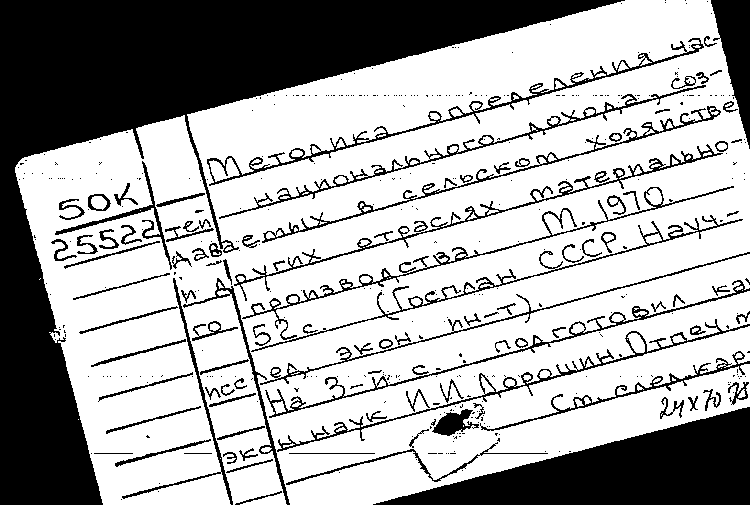 Методика определения час-
50К
25522
тей национального дохода, соз-
даваемых в сельском хозяйстве
и других отраслях материально-
го производства. М., 1970.
52 с. (Госплан СССР. Науч.-
исслед. экон. ин-т).
На 3-й с.: подготовил кан
экон. наук И.И. Дорошин. Отпеч. т
См. след. кар
24X70